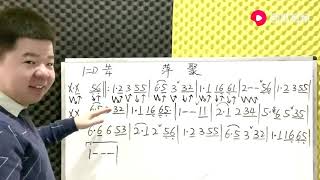 1=D 4/4 萍聚
X·X 56 | 1·2 3 55 | 6·5 3 32 | 1·1 16 61 | 2 - - 56
XX 32 | 1·1 65 | 1 - - 11 | 2·1 2 34 | 5·6 5 35
6·6 6 53 | 2·1 2 56 | 1·2 3 55 | 6·5 3 32 | 1·1 16 65
| 1 - - - |